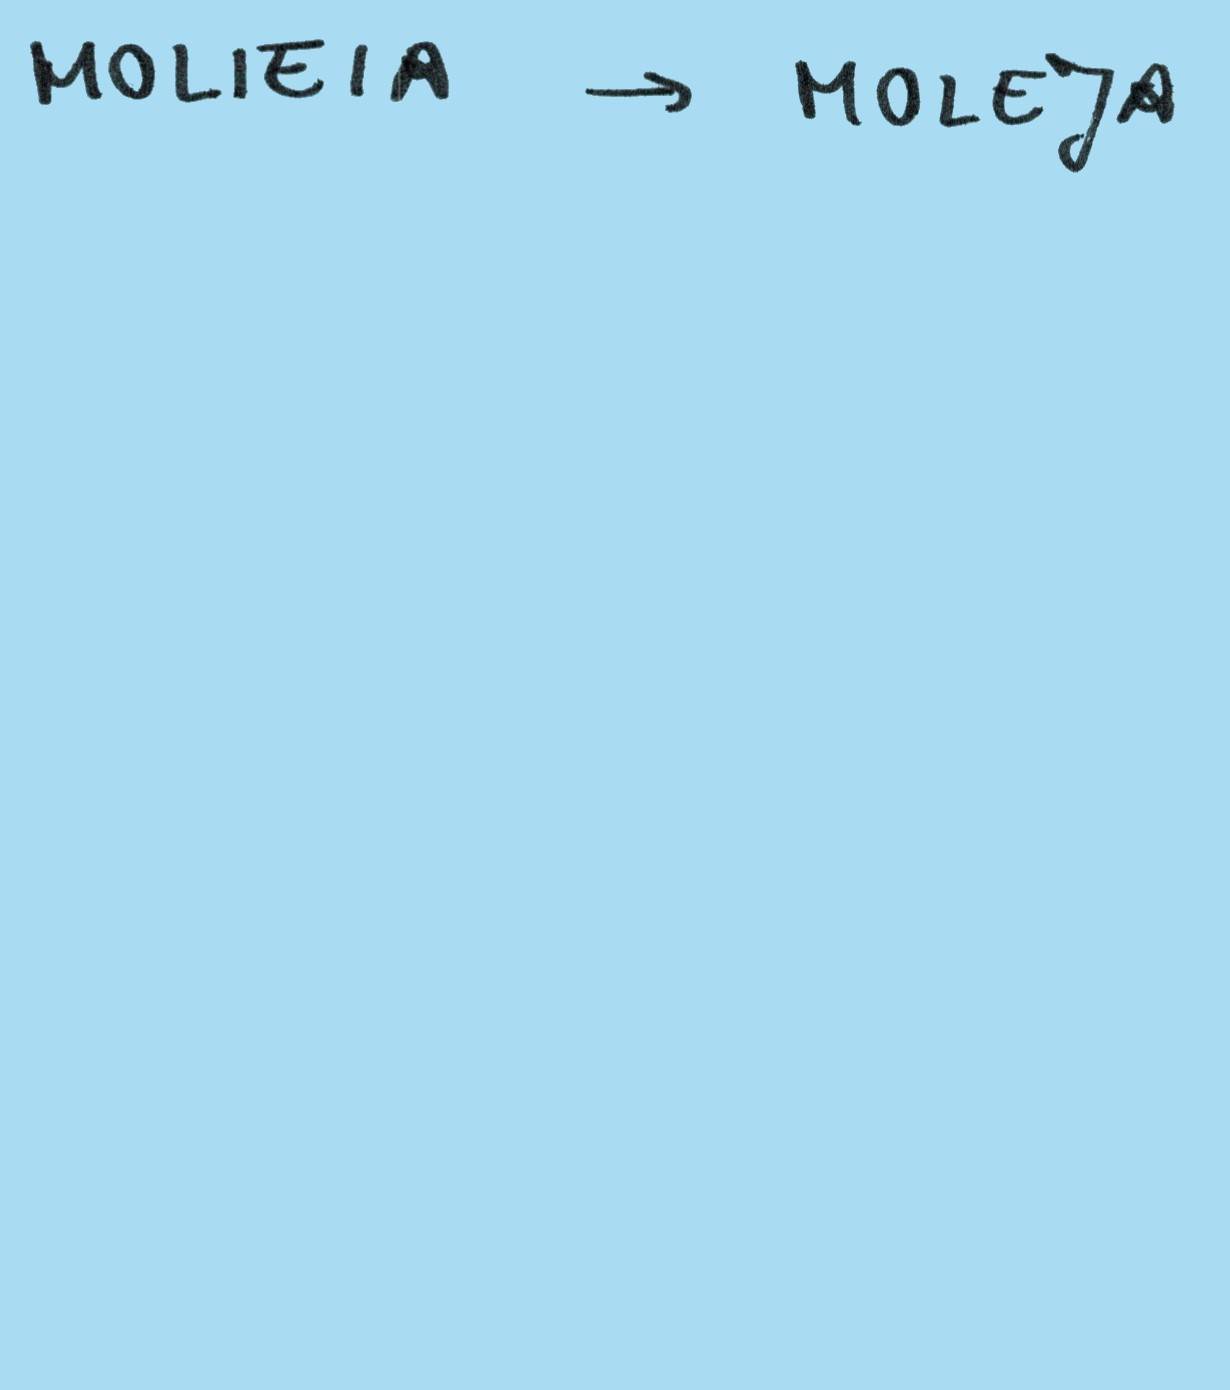 MOLIEIA → MOLEJA